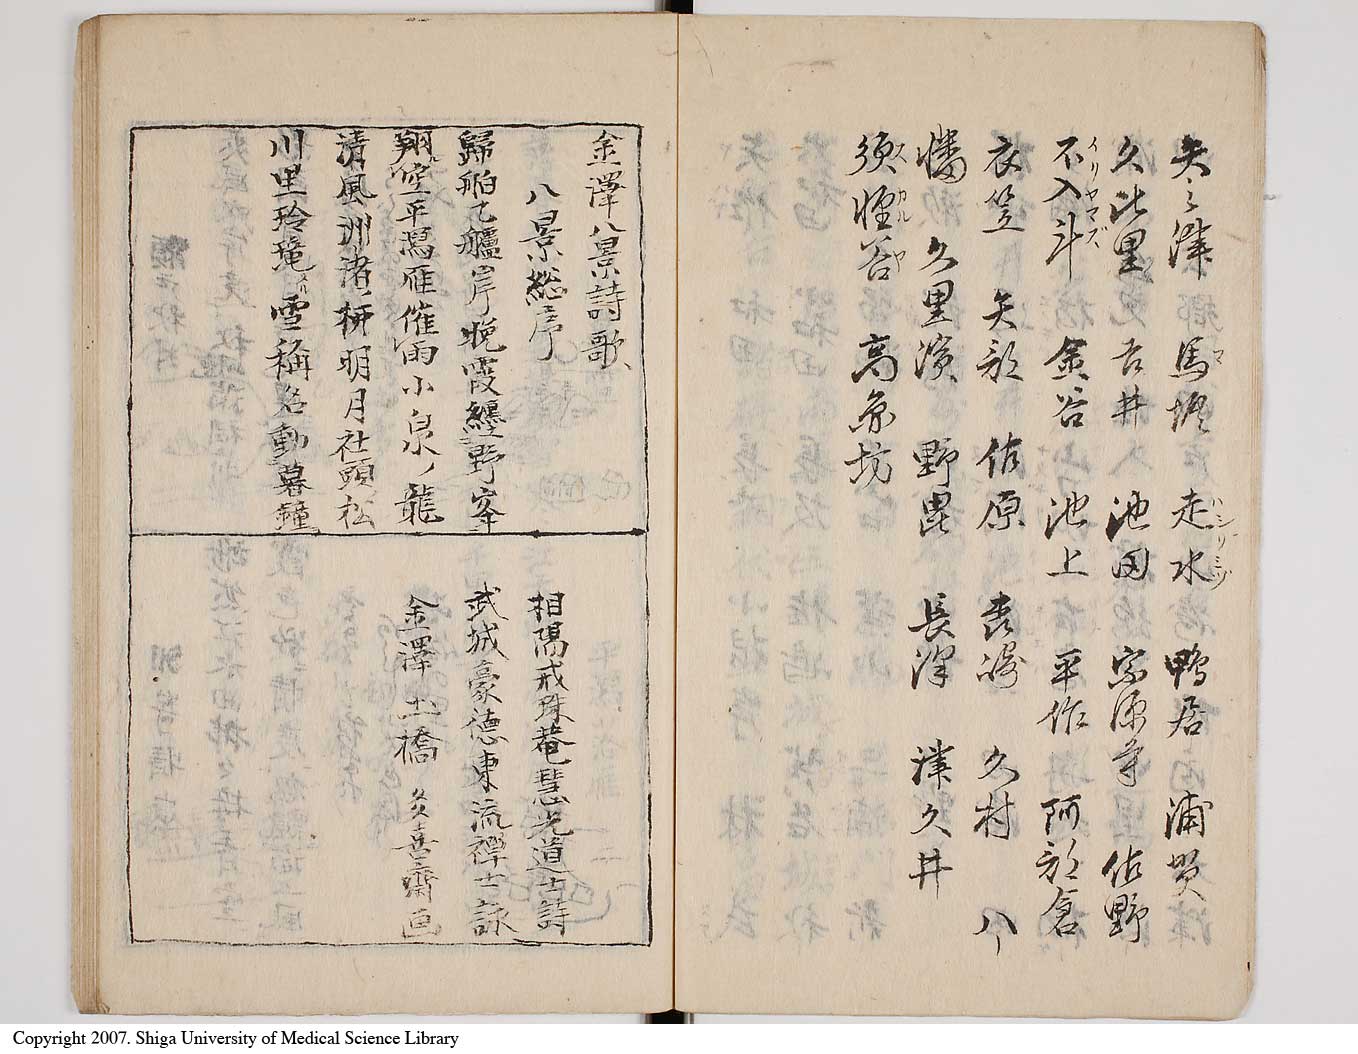 矢之津 馬堀 走水 鴨居 浦賀
久比里 吉井 池田 宗源寺 佐野
不入斗 金谷 池上 平作 阿部倉
衣笠 矢部 佐原 長澤 久村 八
幡 久里濱 野毘 長澤 津久井
須軽谷 高円坊
金澤八景詩歌
八景総序
歸舶乙艫岸晩霞纏野峯
翔空平潟雁催雨小泉ノ龍
清風洲渚ノ栟明月社頭松
川里玲瓏メル雪稱名動暮鐘
相陽戒珠菴慧光道士詩
武城豪德東流禪士詠
金澤土橋 久喜齋画
Copyright 2007. Shiga University of Medical Science Library